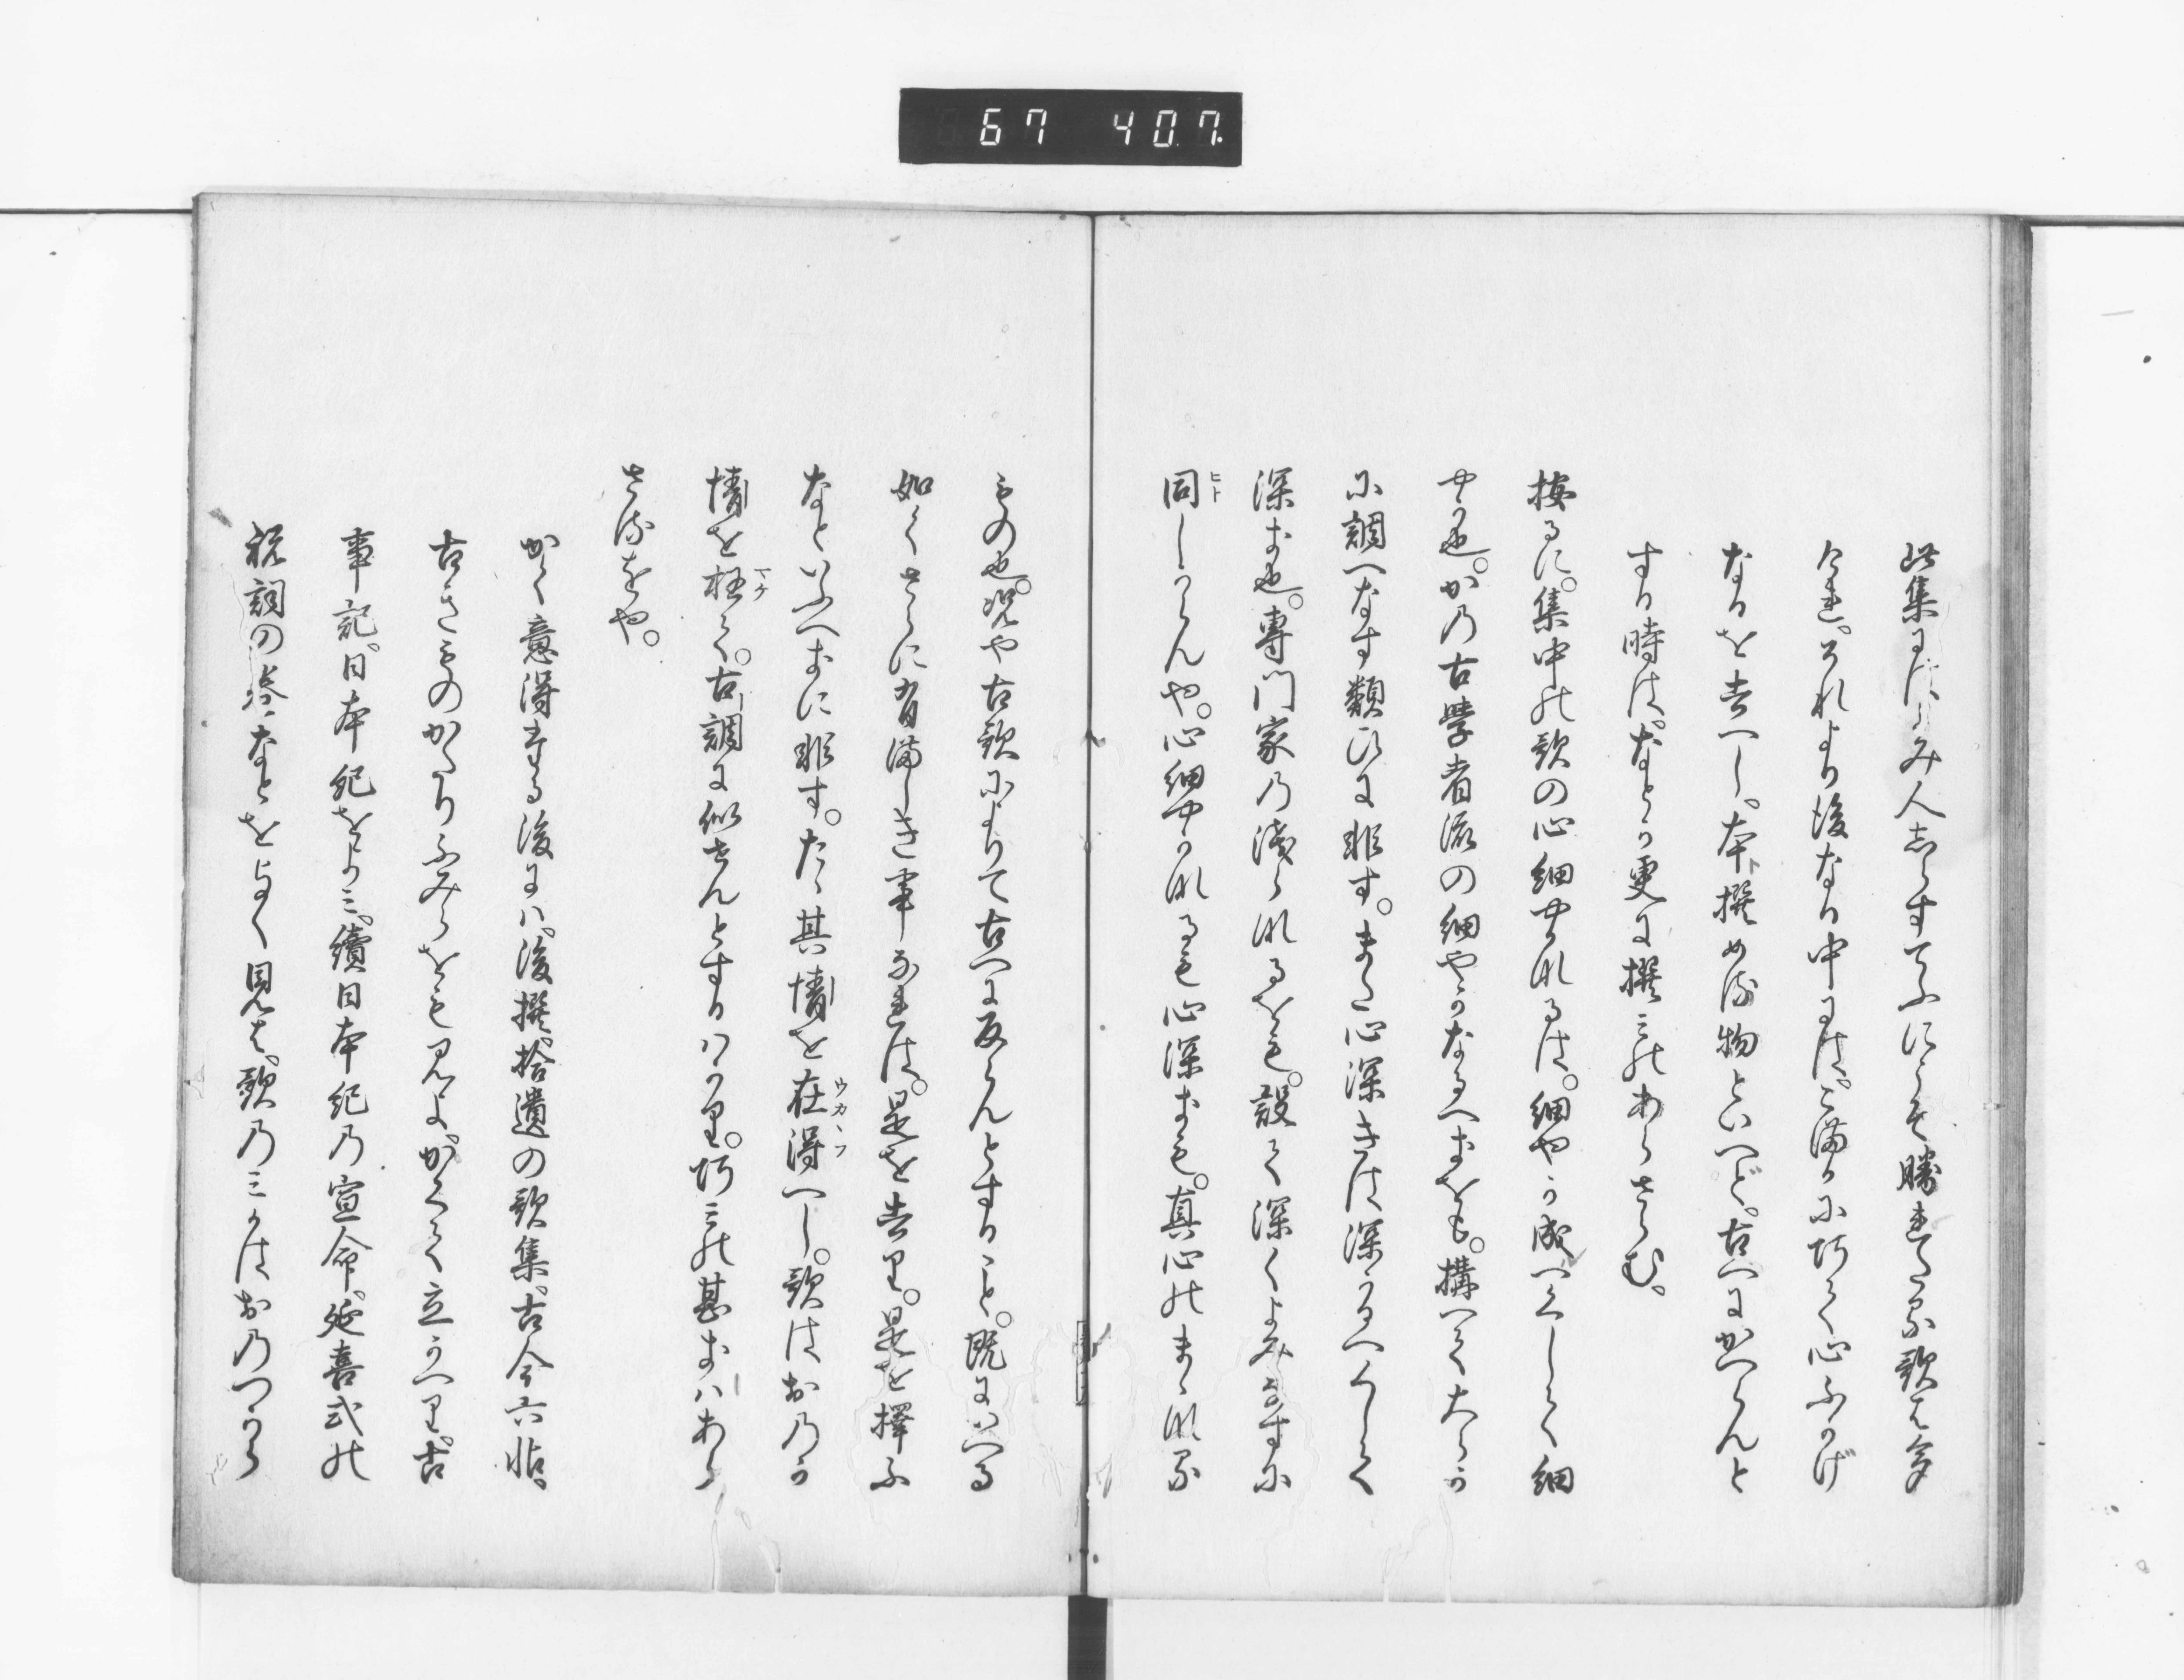 67 40.7.
此集にはよみ人しらすてふにこそ勝れたる歌は多
けれ。それより後なる中には、こまかに巧て心ふかげ
なるを去へし。本撰める物といへど、古へにかへらんと
する時は、などか更に撰みのあらさらむ。
按るに。集中の歌の心細やかなるは。細やか成へくして細
やか也。かの古学者流の細やかなるへきをも。構へて大らか
に調へなす類ひに非す。また心深きは深かるへくして
深き也。専門家の浅らなるをも。設て深くよみなすに
同しからんや。心細やかなるも心深きも。真心のまゝなる
もの也。況や古歌によりて古へに反らんとすること。既にいへる
如くさらに有ましき事なれは。是を去り。是を擇ふ
なといふへきに非す。たゝ其情を在得へし。歌はおのか
情を枉て。古調に似せんとするハかり。巧みの甚きハあら
さるをや。
かく意得たる後にハ、後撰、拾遺の歌集、古今六帖、
古きものかたりふみらをも見よ、かくて立かへり、古
事記、日本紀をよみ、續日本紀の宣命、延喜式の
祝詞の巻なとをよく見は、歌のみかはおのつから